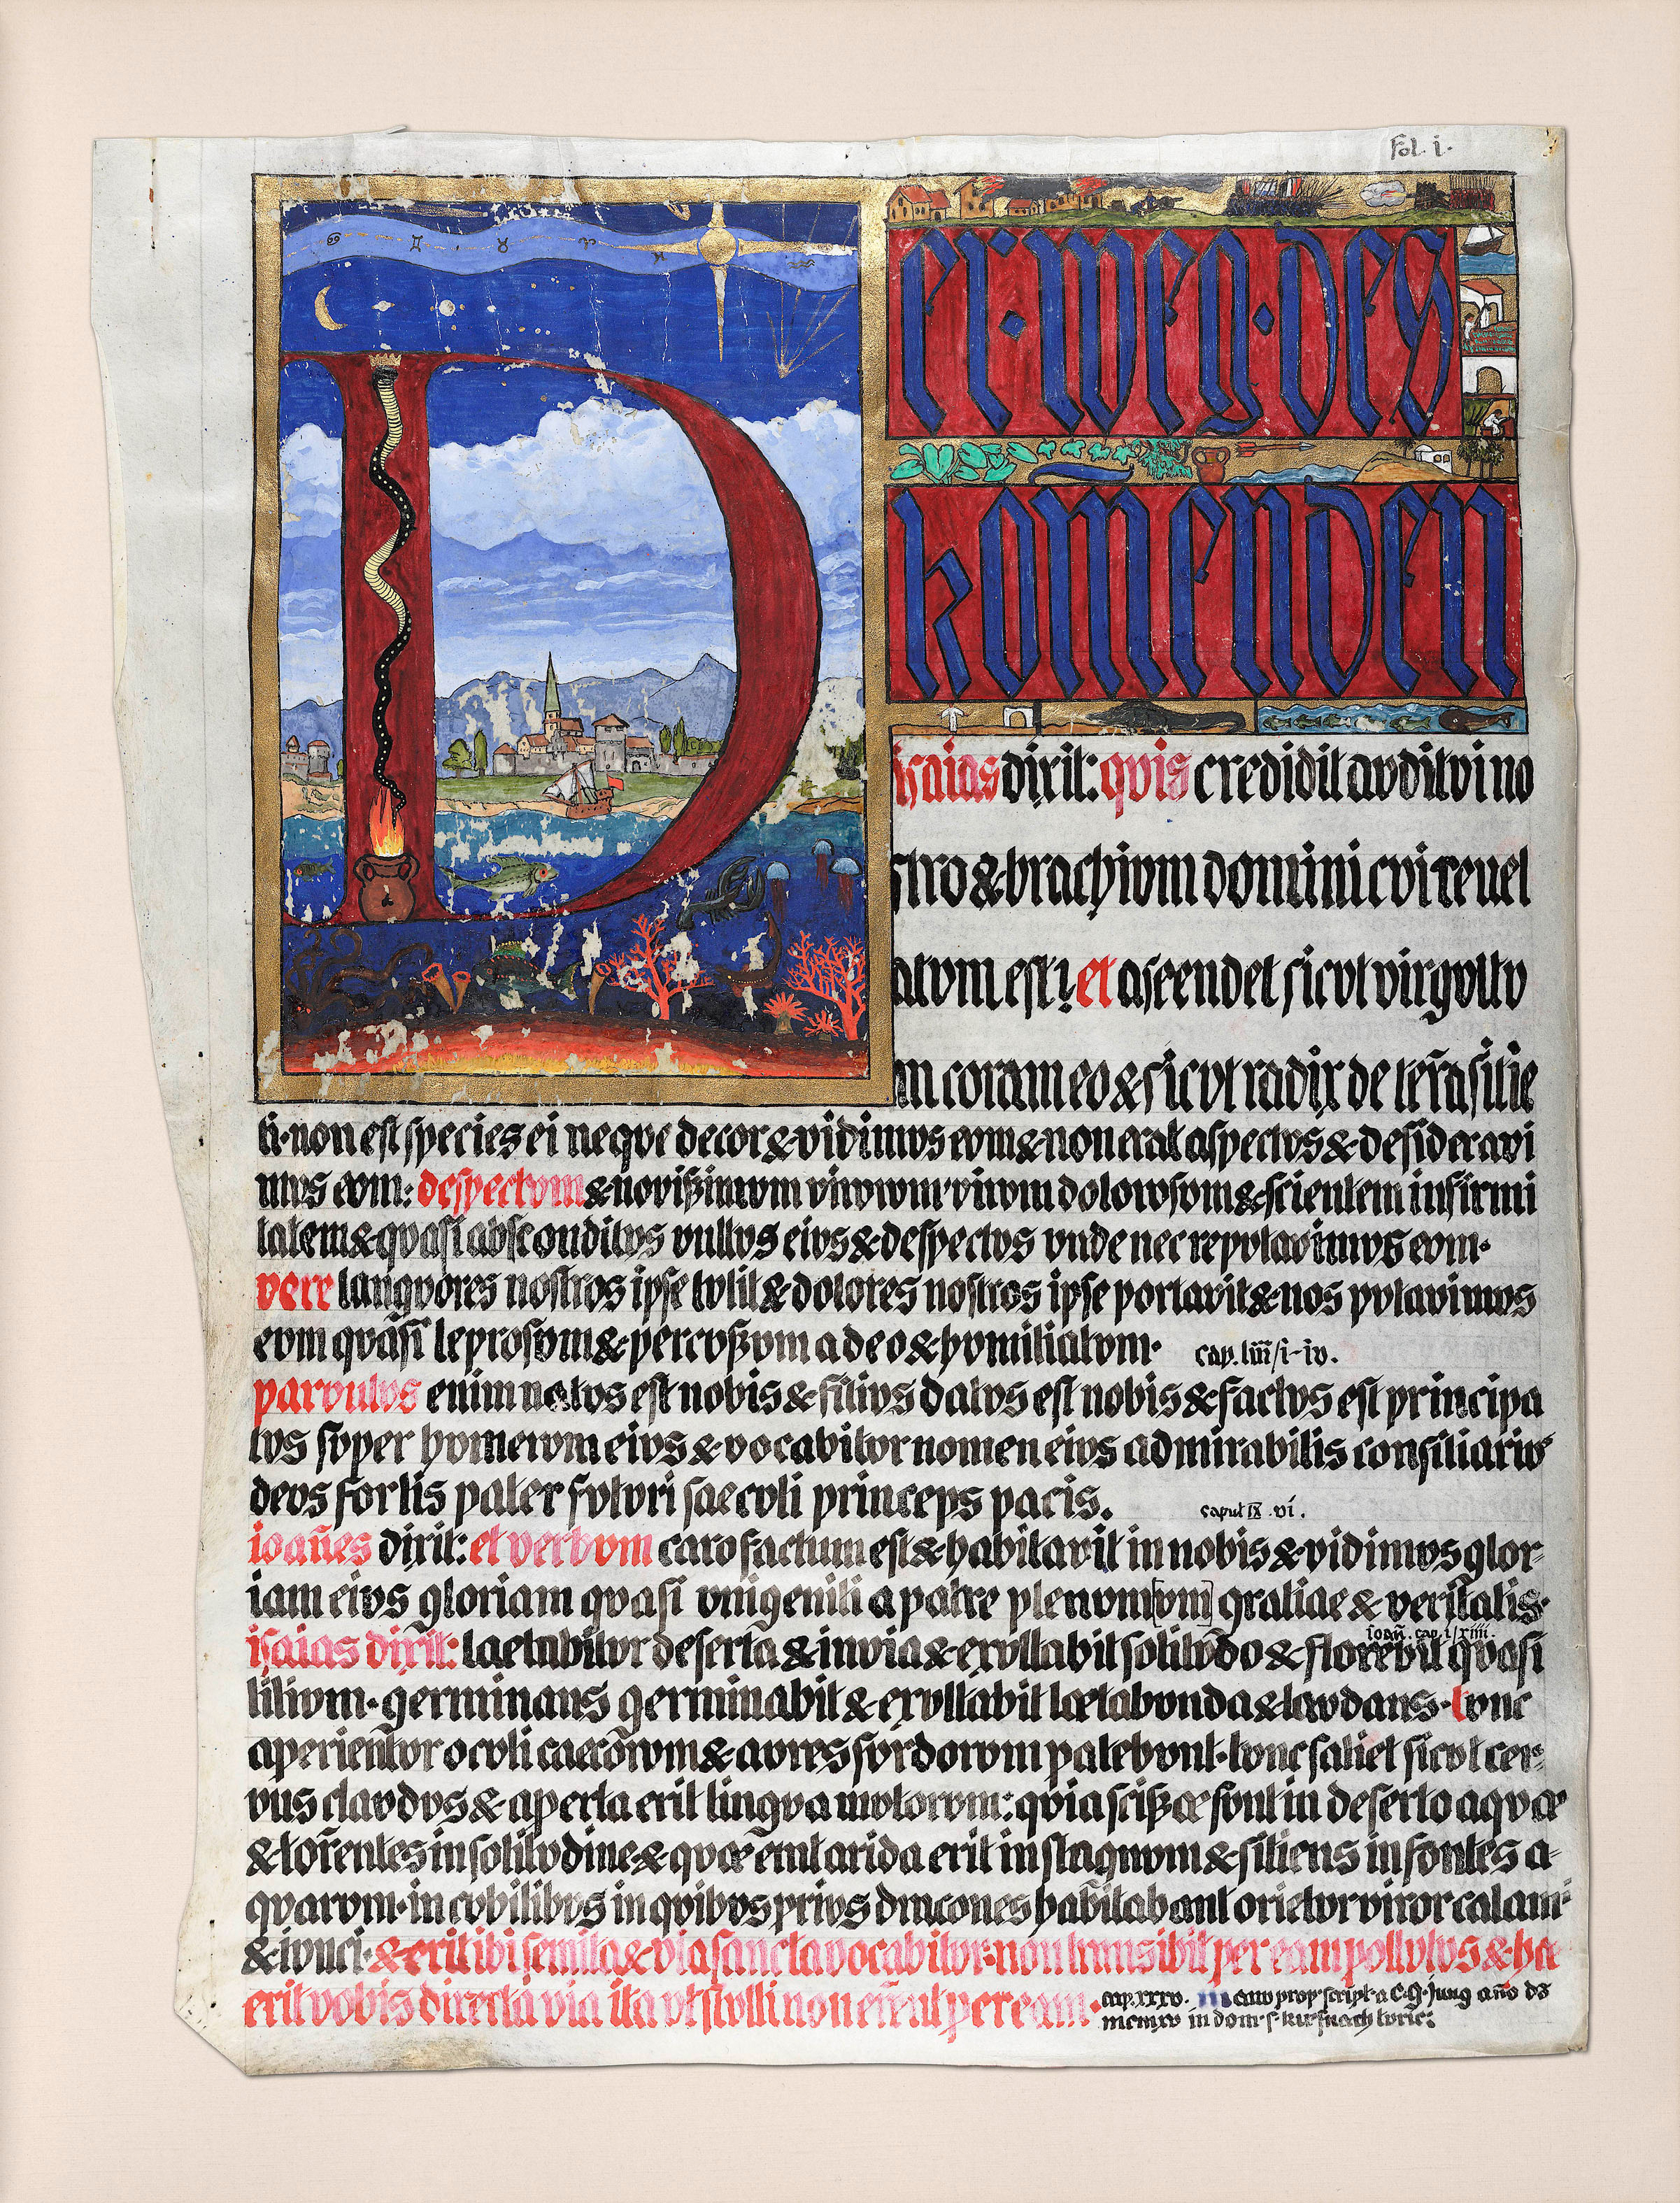 fol. i.
Der · weg · des
komenden
isaias dixit: qvis credidit avditvi no
stro & brachivm domini cvi revel
atvm est? et ascendet sicvt virgvltv
m coram eo & sicvt radix de terra sitie
ti · non est species ei neqve decor & vidimvs evm & non erat aspectvs & desideravi
mvs evm: despectvm & novissimvm virorvm virvm dolorosvm & scientem infirmi
tatem & qvasi absconditvs vultvs eivs & despectvs vnde nec repvtavimvs evm ·
vere langvores nostros ipse tvlit & dolores nostros ipse portavit & nos pvtavimvs
evm qvasi leprosvm & percvssvm a deo & hvmiliatvm · cap. liii/i-iv.
parvulvs enim natvs est nobis & filivs datvs est nobis & factvs est principa
tvs svper hvmervm eivs & vocabitvr nomen eivs admirabilis consiliarivs
devs fortis pater fvtvri saecvli princeps pacis. caput IX . vi.
ioañes dixit: et verbvm caro factum est & habitavit in nobis & vidimvs glor-
iam eivs gloriam qvasi vnigeniti a patre plenvm[vm] gratiae & veritatis ·
ioañ. cap. i/xiiii.
isaias dixit: laetabitvr deserta & invia & exvltabit solitvdo & florebit qvasi
lilivm · germinans germinabit & exvltabit lætabvnda & lavdans · tvnc
aperientvr ocvli caecorvm & avres svrdorvm patebvnt · tvnc saliet sicvt cer-
vus clavdvs & aperta erit lingva mvtorvm: qvia scissæ svnt in deserto aqvæ
& torentes in solitvdine & qvæ erat arida erit in stagnvm & sitiens in fontes a-
qvarvm · in cvbilibvs in qvibvs privs dracones habitabant orietvr viror calami
& ivnci · & erit ibi semita & via sancta vocabitvr · non transibit per eam pollvtvs & hæc
erit vobis directa via ita vt stvlti non errent per eam · cap. xxxv.
manv prop. script. a C. G. Jung año dñ
mcmxv in dom. s. kusnach tvric.